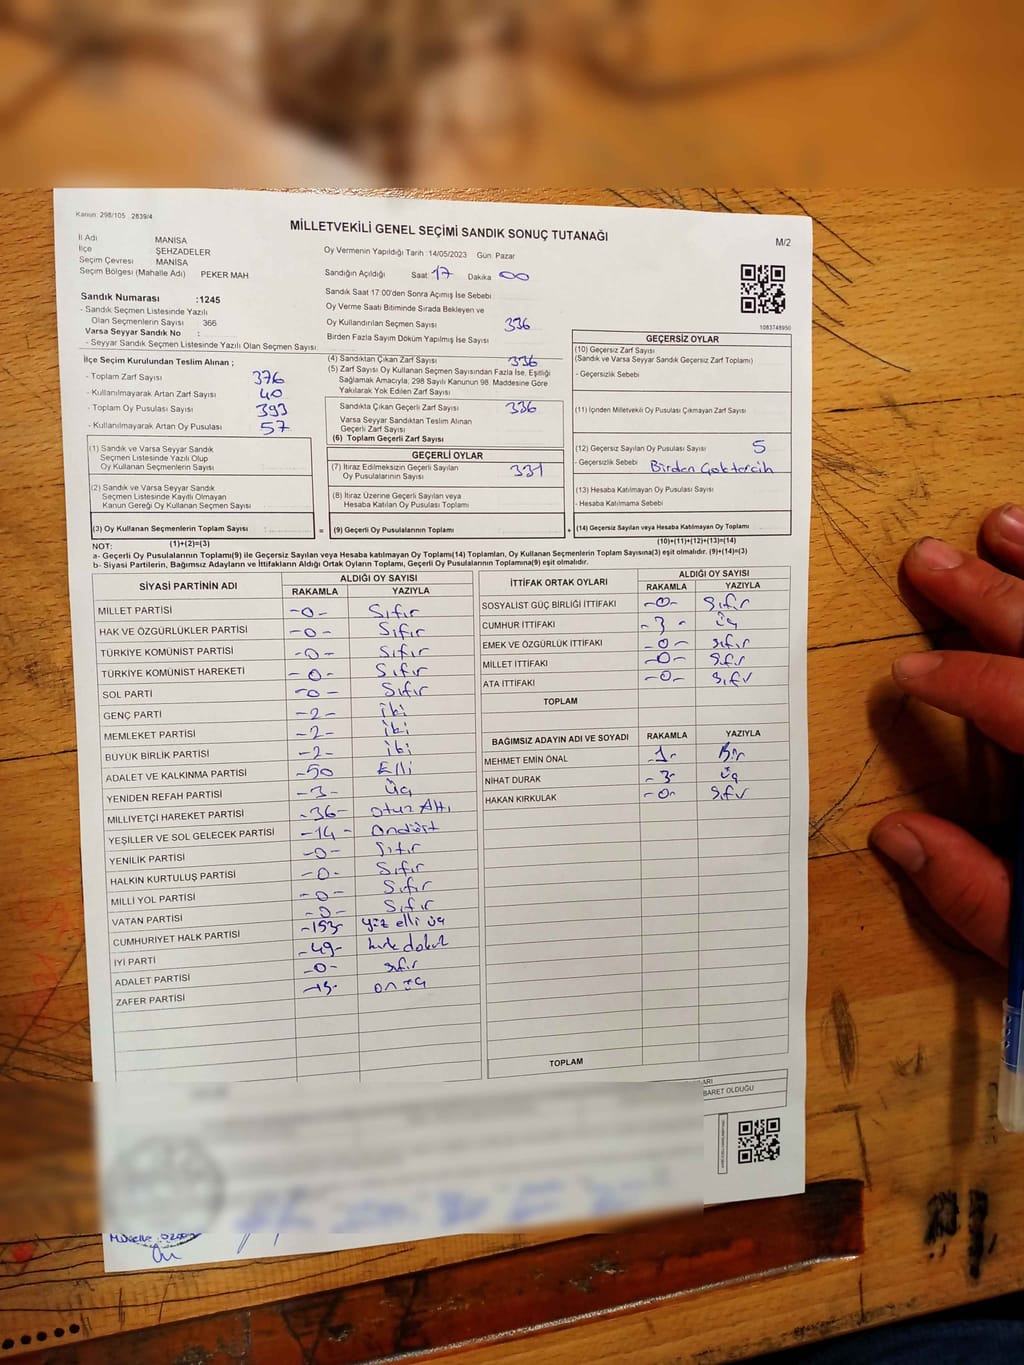 Kanun: 298/105 , 2839/4
MİLLETVEKİLİ GENEL SEÇİMİ SANDIK SONUÇ TUTANAĞI
M/2
İl Adı MANİSA
İlçe ŞEHZADELER
Seçim Çevresi MANİSA
Seçim Bölgesi (Mahalle Adı) PEKER MAH
Oy Vermenin Yapıldığı Tarih :14/05/2023 Gün: Pazar
Sandığın Açıldığı Saat: 17 Dakika 00
Sandık Saat 17:00'den Sonra Açımış İse Sebebi
Oy Verme Saati Bitiminde Sırada Bekleyen ve
Oy Kullandırılan Seçmen Sayısı 336
Birden Fazla Sayım Döküm Yapılmış İse Sayısı
1083748950
Sandık Numarası :1245
- Sandık Seçmen Listesinde Yazılı
Olan Seçmenlerin Sayısı 366
Varsa Seyyar Sandık No :
- Seyyar Sandık Seçmen Listesinde Yazılı Olan Seçmen Sayısı:
İlçe Seçim Kurulundan Teslim Alınan ;
- Toplam Zarf Sayısı 376
- Kullanılmayarak Artan Zarf Sayısı 40
- Toplam Oy Pusulası Sayısı 393
- Kullanılmayarak Artan Oy Pusulası 57
(1) Sandık ve Varsa Seyyar Sandık
Seçmen Listesinde Yazılı Olup
Oy Kullanan Seçmenlerin Sayısı
(2) Sandık ve Varsa Seyyar Sandık
Seçmen Listesinde Kayıtlı Olmayan
Kanun Gereği Oy Kullanan Seçmen Sayısı
(3) Oy Kullanan Seçmenlerin Toplam Sayısı
(1)+(2)=(3)
(4) Sandıktan Çıkan Zarf Sayısı 336
(5) Zarf Sayısı Oy Kullanan Seçmen Sayısından Fazla İse, Eşitliği
Sağlamak Amacıyla; 298 Sayılı Kanunun 98. Maddesine Göre
Yakılarak Yok Edilen Zarf Sayısı
Sandıkta Çıkan Geçerli Zarf Sayısı 336
Varsa Seyyar Sandıktan Teslim Alınan
Geçerli Zarf Sayısı
(6) Toplam Geçerli Zarf Sayısı
GEÇERLİ OYLAR
(7) İtiraz Edilmeksizin Geçerli Sayılan
Oy Pusulalarının Sayısı 331
(8) İtiraz Üzerine Geçerli Sayılan veya
Hesaba Katılan Oy Pusulası Toplamı
= (9) Geçerli Oy Pusulalarının Toplamı
GEÇERSİZ OYLAR
(10) Geçersiz Zarf Sayısı
(Sandık ve Varsa Seyyar Sandık Geçersiz Zarf Toplamı)
- Geçersizlik Sebebi
(11) İçinden Milletvekili Oy Pusulası Çıkmayan Zarf Sayısı
(12) Geçersiz Sayılan Oy Pusulası Sayısı 5
- Geçersizlik Sebebi Birden Çok tercih
(13) Hesaba Katılmayan Oy Pusulası Sayısı
- Hesaba Katılmama Sebebi
+ (14) Geçersiz Sayılan veya Hesaba Katılmayan Oy Toplamı
(10)+(11)+(12)+(13)=(14)
NOT:
a- Geçerli Oy Pusulalarının Toplamı(9) ile Geçersiz Sayılan veya Hesaba katılmayan Oy Toplamı(14) Toplamları, Oy Kullanan Seçmenlerin Toplam Sayısına(3) eşit olmalıdır. (9)+(14)=(3)
b- Siyasi Partilerin, Bağımsız Adayların ve İttifakların Aldığı Ortak Oyların Toplamı, Geçerli Oy Pusulalarının Toplamına(9) eşit olmalıdır.
SİYASİ PARTİNİN ADI ALDIĞI OY SAYISI
RAKAMLA YAZIYLA
MİLLET PARTİSİ -0- Sıfır
HAK VE ÖZGÜRLÜKLER PARTİSİ -0- Sıfır
TÜRKİYE KOMÜNİST PARTİSİ -0- Sıfır
TÜRKİYE KOMÜNİST HAREKETİ -0- Sıfır
SOL PARTİ -0- Sıfır
GENÇ PARTİ -2- iki
MEMLEKET PARTİSİ -2- iki
BÜYÜK BİRLİK PARTİSİ -2- iki
ADALET VE KALKINMA PARTİSİ -50 Elli
YENİDEN REFAH PARTİSİ -3- Üç
MİLLİYETÇİ HAREKET PARTİSİ -36- otuz Altı
YEŞİLLER VE SOL GELECEK PARTİSİ -14- Ondört
YENİLİK PARTİSİ -0- Sıfır
HALKIN KURTULUŞ PARTİSİ -0- Sıfır
MİLLİ YOL PARTİSİ -0- Sıfır
VATAN PARTİSİ -0- Sıfır
CUMHURİYET HALK PARTİSİ -153- yüz elli üç
İYİ PARTİ -49- kırk dokuz
ADALET PARTİSİ -0- sıfır
ZAFER PARTİSİ -13- on üç
İTTİFAK ORTAK OYLARI ALDIĞI OY SAYISI
RAKAMLA YAZIYLA
SOSYALİST GÜÇ BİRLİĞİ İTTİFAKI -0- Sıfır
CUMHUR İTTİFAKI -3- üç
EMEK VE ÖZGÜRLÜK İTTİFAKI -0- sıfır
MİLLET İTTİFAKI -0- Sıfır
ATA İTTİFAKI -0- Sıfır
TOPLAM
BAĞIMSIZ ADAYIN ADI VE SOYADI RAKAMLA YAZIYLA
MEHMET EMİN ÖNAL -1- Bir
NİHAT DURAK -3- Üç
HAKAN KIRKULAK -0- Sıfır
TOPLAM
BARET OLDUĞU